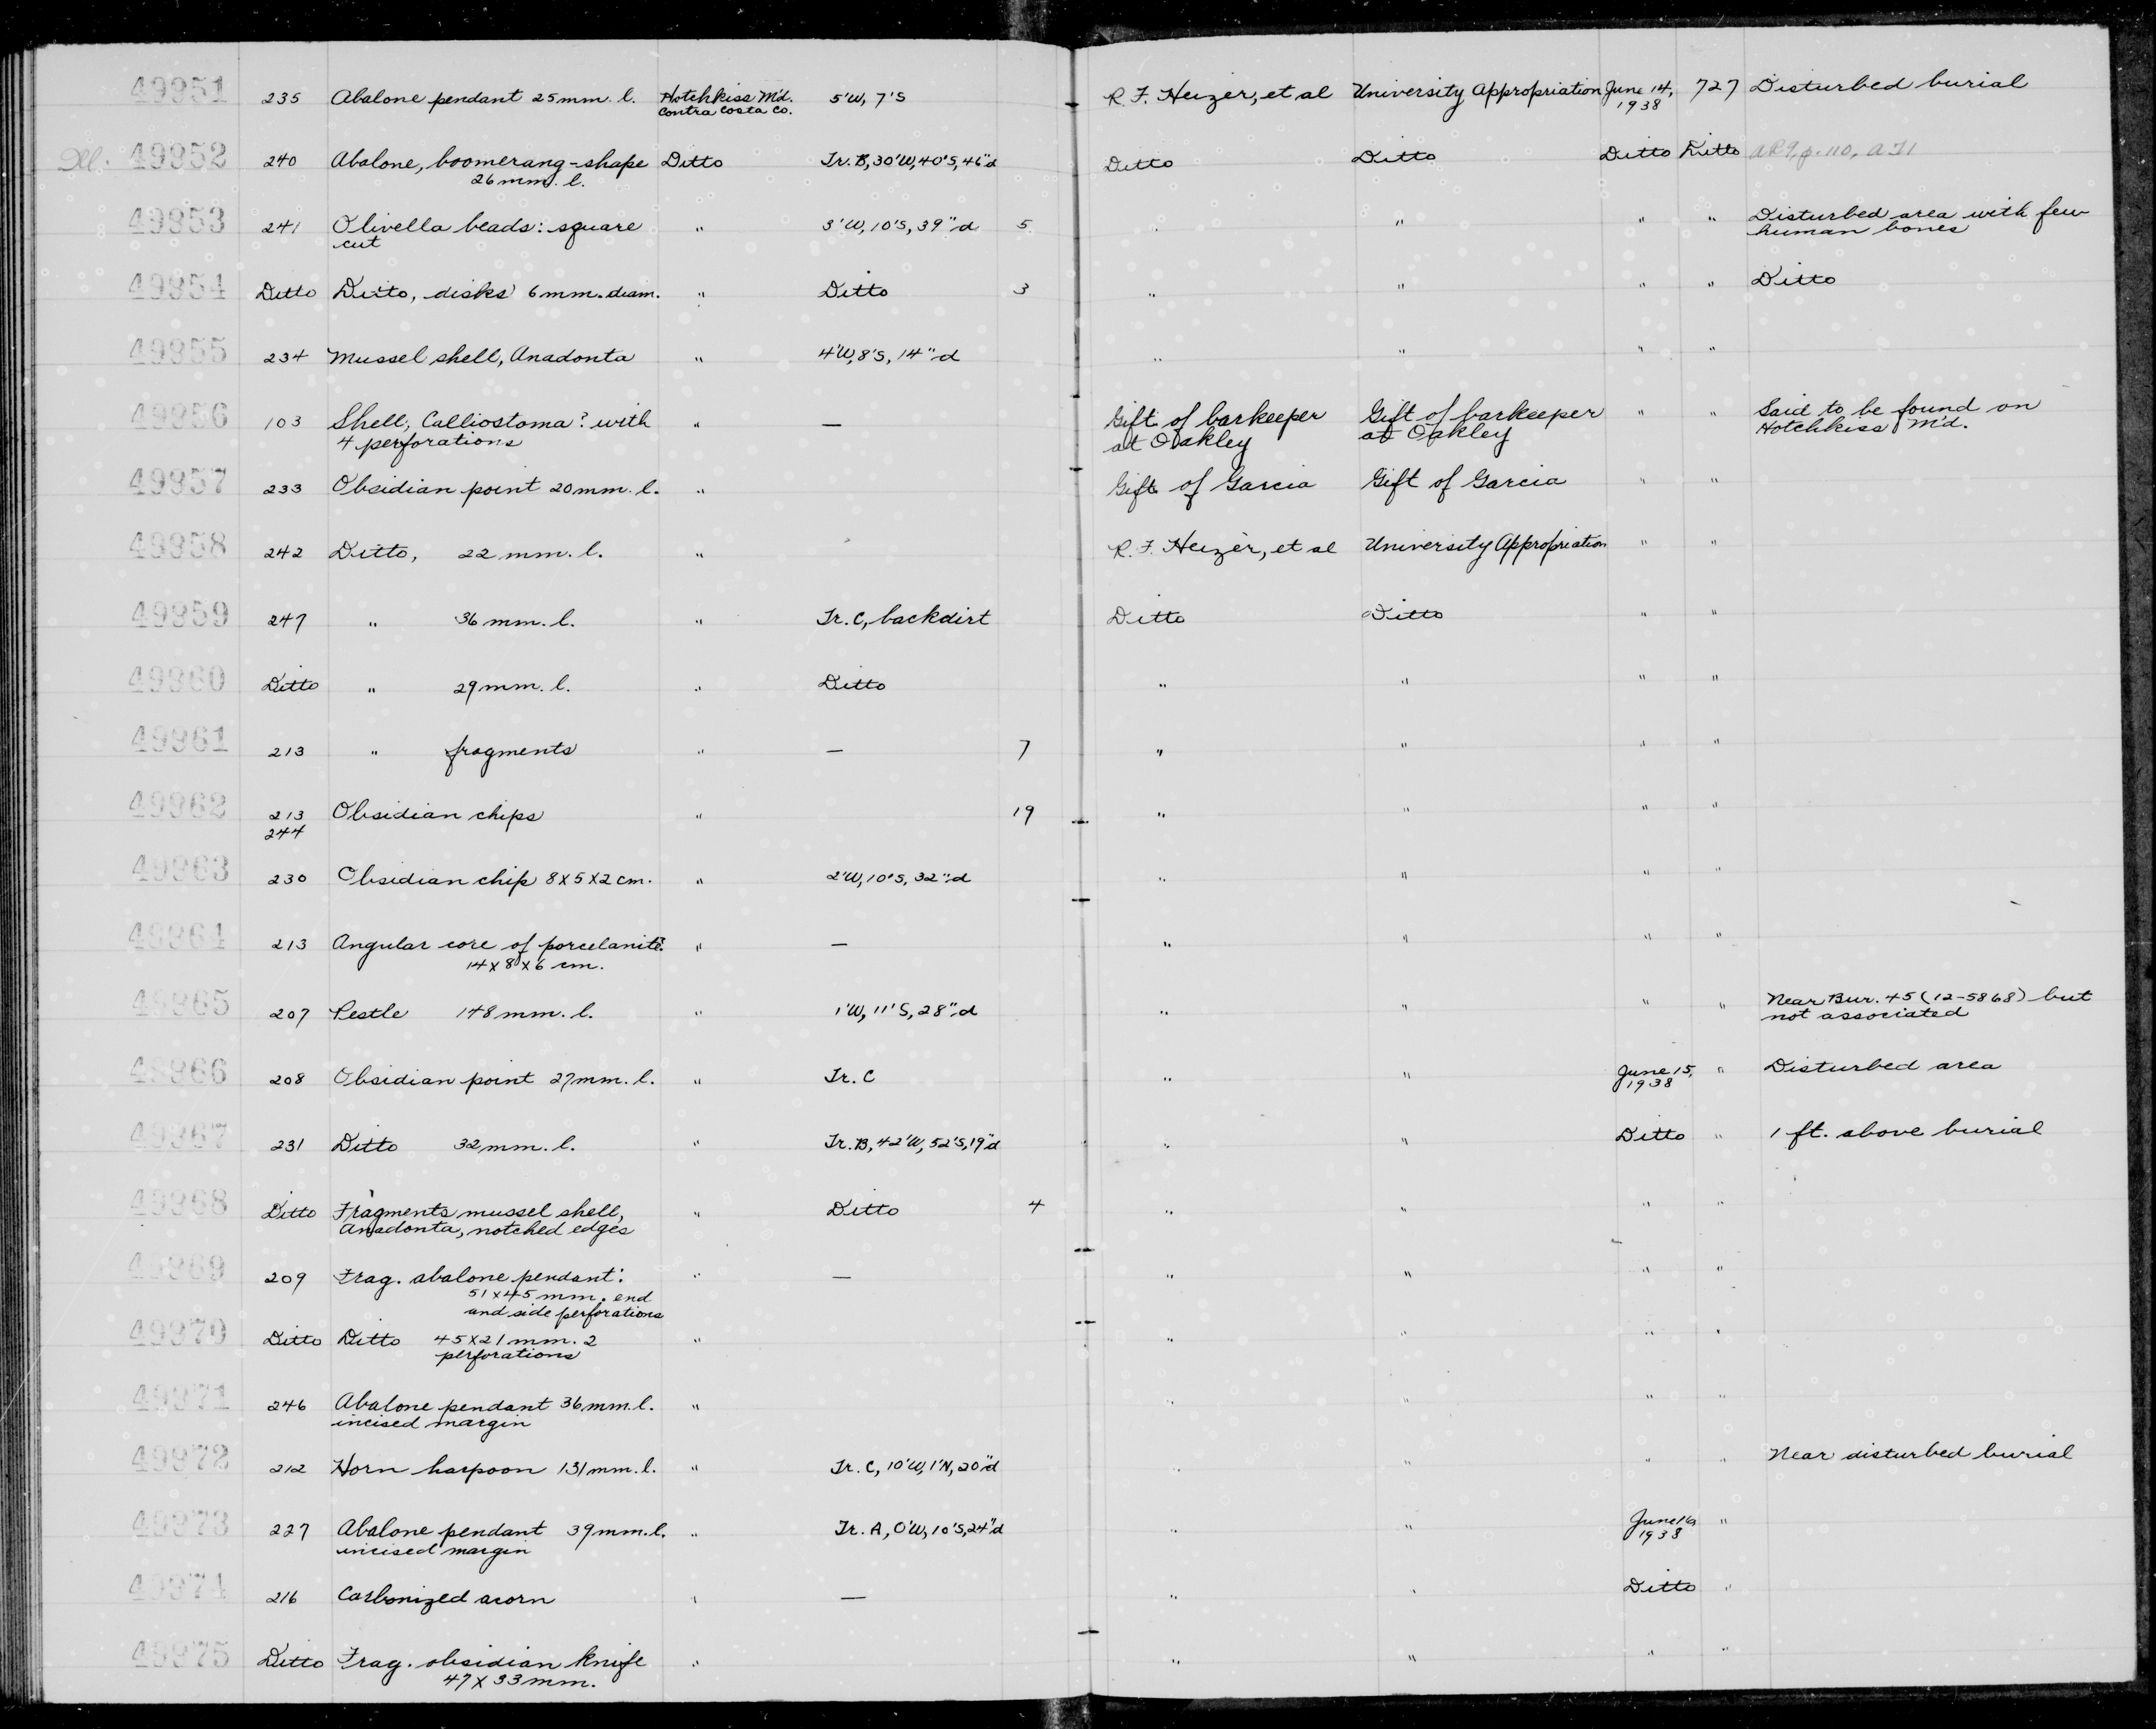 49951 235 Abalone pendant 25mm. l. Hotchkiss M'd. 5'W, 7'S R. F. Heizer, et al University Appropriation June 14, 727 Disturbed burial
Contra Costa Co. 1938
Ill. 49952 240 Abalone, boomerang-shape Ditto Tr. B, 30'W, 40'S, 46"d Ditto Ditto Ditto Ditto AR9, p. 110,
26 mm. l.
49953 241 Olivella beads: square " 3'W, 10'S, 39"d 5 " " " " Disturbed area with few
cut human bones
49954 Ditto Ditto, disks 6mm. diam. " Ditto 3 " " " " Ditto
49955 234 Mussel shell, Anadonta " 4'W, 8'S, 14"d " " " "
49956 103 Shell, Calliostoma? with " — Gift of barkeeper Gift of barkeeper " " Said to be found on
4 perforations at Oakley at Oakley Hotchkiss M'd.
49957 233 Obsidian point 20mm. l. " Gift of Garcia Gift of Garcia " "
49958 242 Ditto, 22 mm. l. " R. F. Heizer, et al University Appropriation " "
49959 247 " 36 mm. l. " Tr. C, backdirt Ditto Ditto " "
49960 Ditto " 29mm. l. " Ditto " " " "
49961 213 " fragments " — 7 " " " "
49962 213 Obsidian chips " 19 " " " "
244
49963 230 Obsidian chip 8x5x2cm. " 2'W, 10'S, 32"d " " " "
49964 213 Angular core of porcelanite " — " " " "
14x8x6 cm.
49965 207 Pestle 148mm. l. " 1'W, 11'S, 28"d " " " " Near Bur. 45 (12-5868) but
not associated
49966 208 Obsidian point 27mm. l. " Tr. C " " June 15, " Disturbed area
1938
49967 231 Ditto 32mm. l. " Tr. B, 42'W, 52'S, 19"d " " Ditto " 1 ft. above burial
49968 Ditto Fragments mussel shell, " Ditto 4 " " " "
Anadonta, notched edges
49969 209 Frag. abalone pendant: " — " " " "
51x45 mm. end
and side perforations
49970 Ditto Ditto 45x21mm. 2 " " " " "
perforations
49971 246 Abalone pendant 36mm. l. " " " " "
incised margin
49972 212 Horn harpoon 131mm. l. " Tr. C, 10'W, 1'N, 20"d " " " " Near disturbed burial
49973 227 Abalone pendant 39mm. l. " Tr. A, 0'W, 10'S, 24"d " " June 16 "
incised margin 1938
49974 216 Carbonized acorn " — " " Ditto "
49975 Ditto Frag. obsidian knife " " " " "
47x33mm.